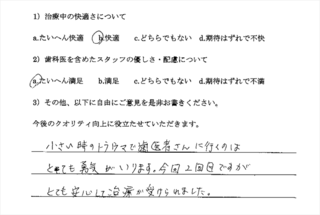 1）治療中の快適さについて
a.たいへん快適 b.快適 c.どちらでもない d.期待はずれで不快
2）歯科医を含めたスタッフの優しさ・配慮について
a.たいへん満足 b.満足 c.どちらでもない d.期待はずれで不満
3）その他、以下に自由にご意見を是非お書きください。
今後のクオリティ向上に役立たせていただきます。
小さい時のトラウマで歯医者さんに行くのは
とても勇気がいります。今回2回目ですが
とても安心して治療が受けられました。